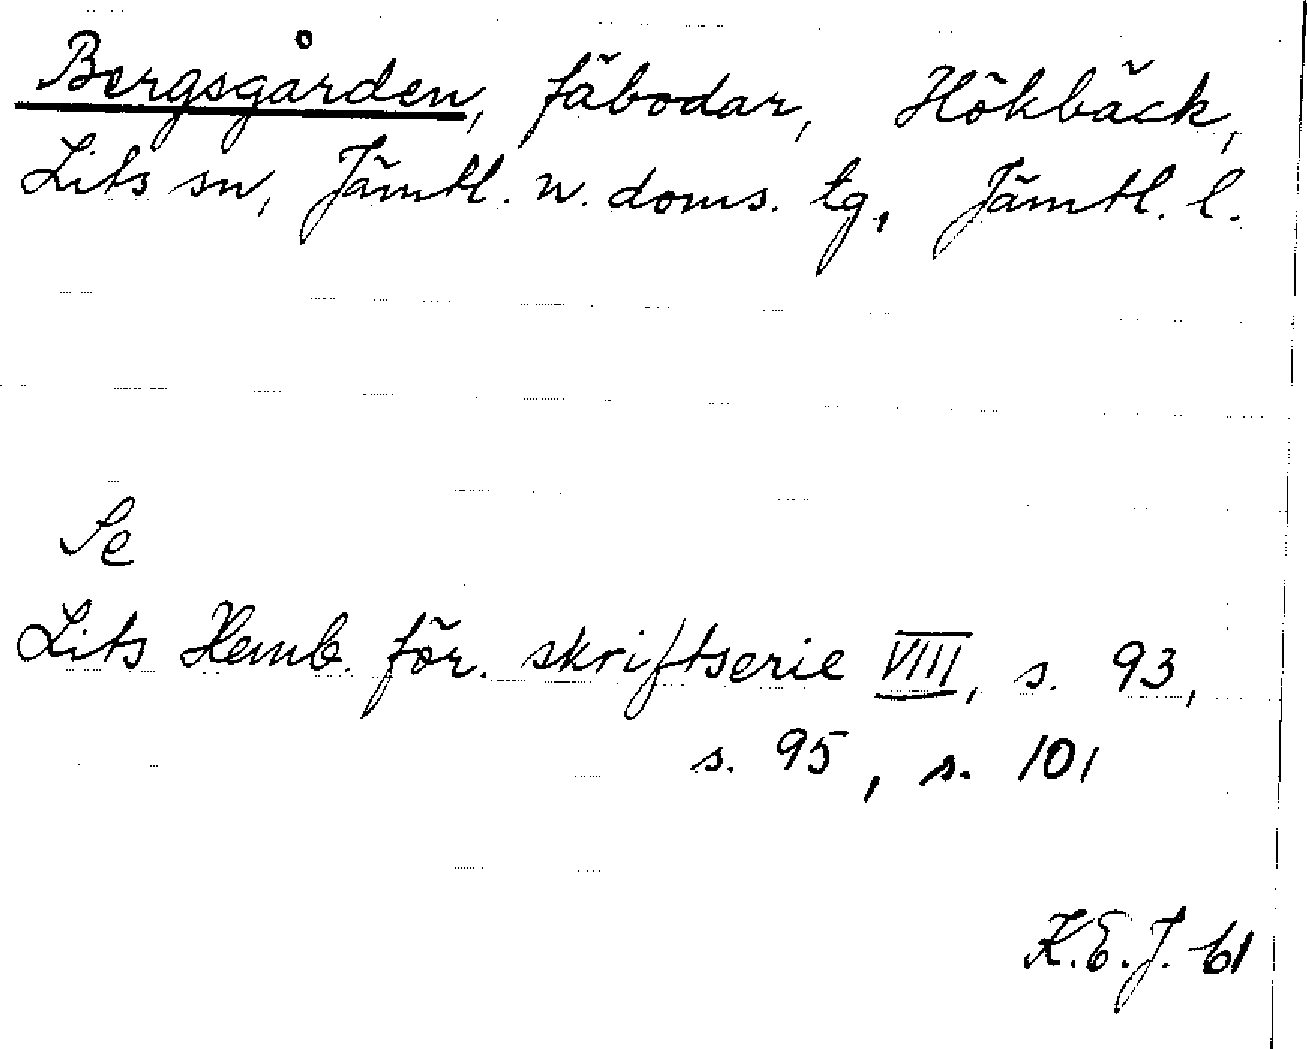 Bergsgården, fäbodar, Hökbäck,
Lits sn, Jämtl. n. doms. tg, Jämtl. l.
Se
Lits Hemb. för. skriftserie VIII, s. 93,
s. 95, s. 101
K.E.J. 61